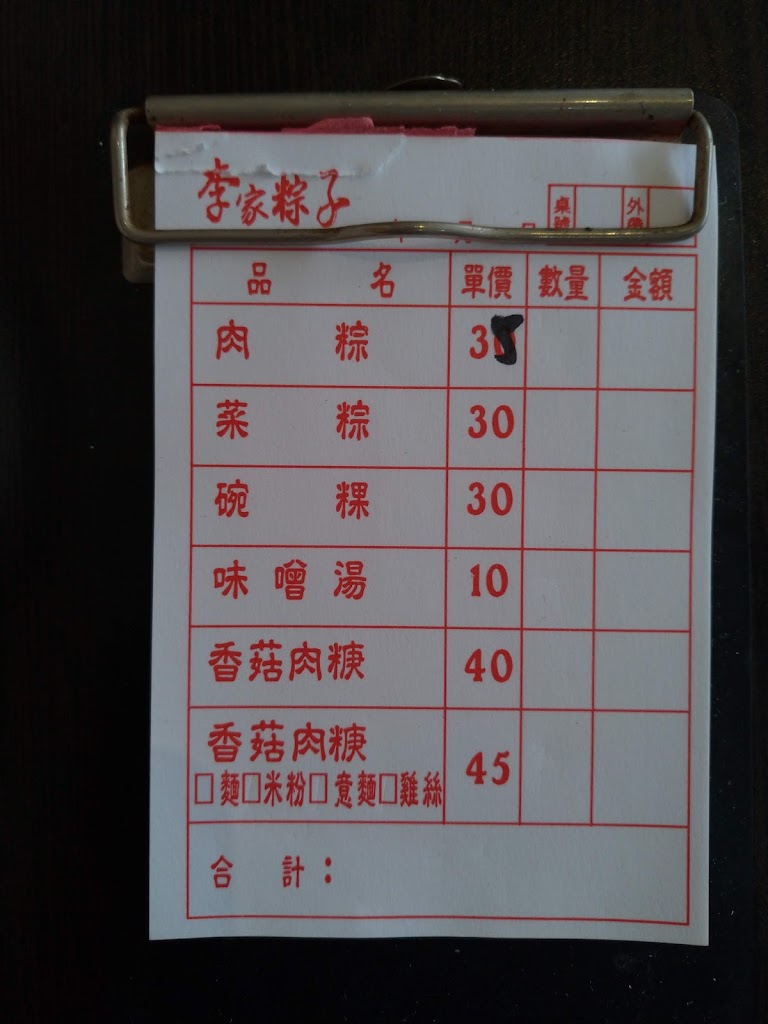 李家粽子
桌號 外帶
年 月 日
品名 單價 數量 金額
肉粽 35
菜粽 30
碗粿 30
味噌湯 10
香菇肉焿 40
香菇肉焿 45
□麵□米粉□意麵□雞絲
合計：